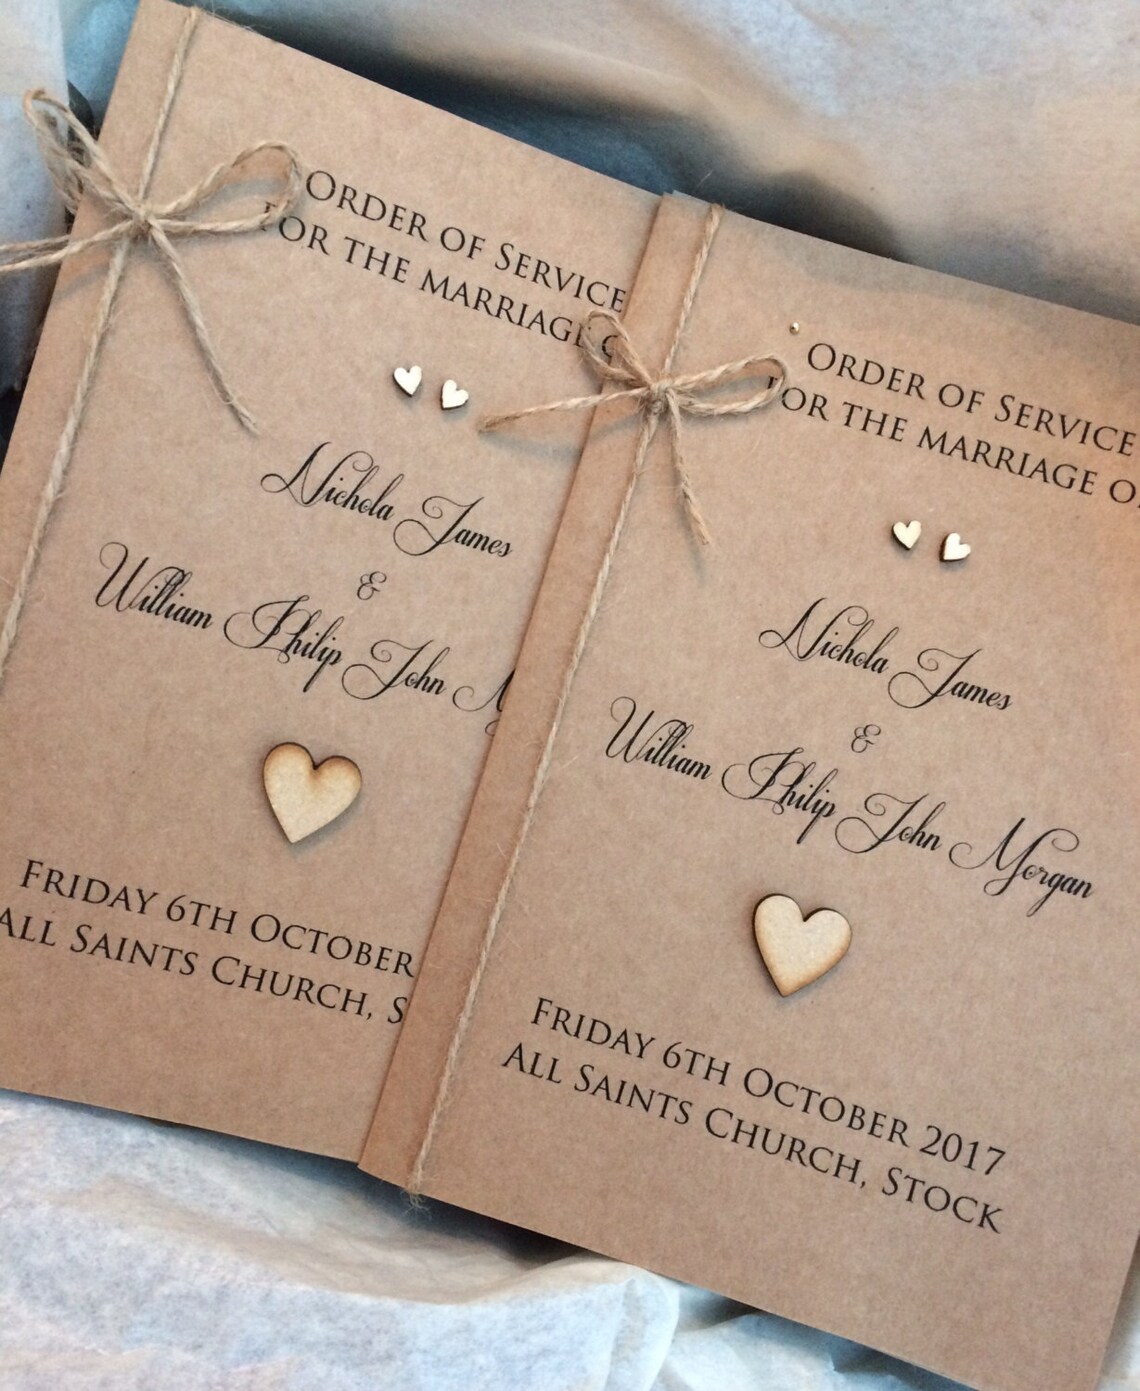 Order of Service
for the marriage
Nichola James
&
William Philip John
Friday 6th October
All Saints Church, S
Order of Service
for the marriage o
Nichola James
&
William Philip John Morgan
Friday 6th October 2017
All Saints Church, Stock